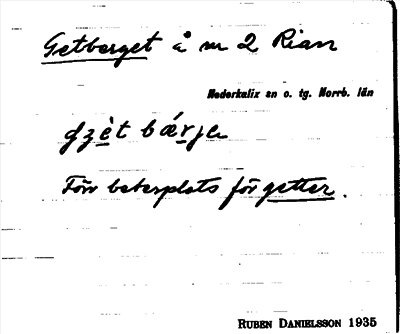 Getberget å nr 2 Rian
Nederkalix sn o. tg. Norrb. län
Förr betesplats för getter.
RUBEN DANIELSSON 1935